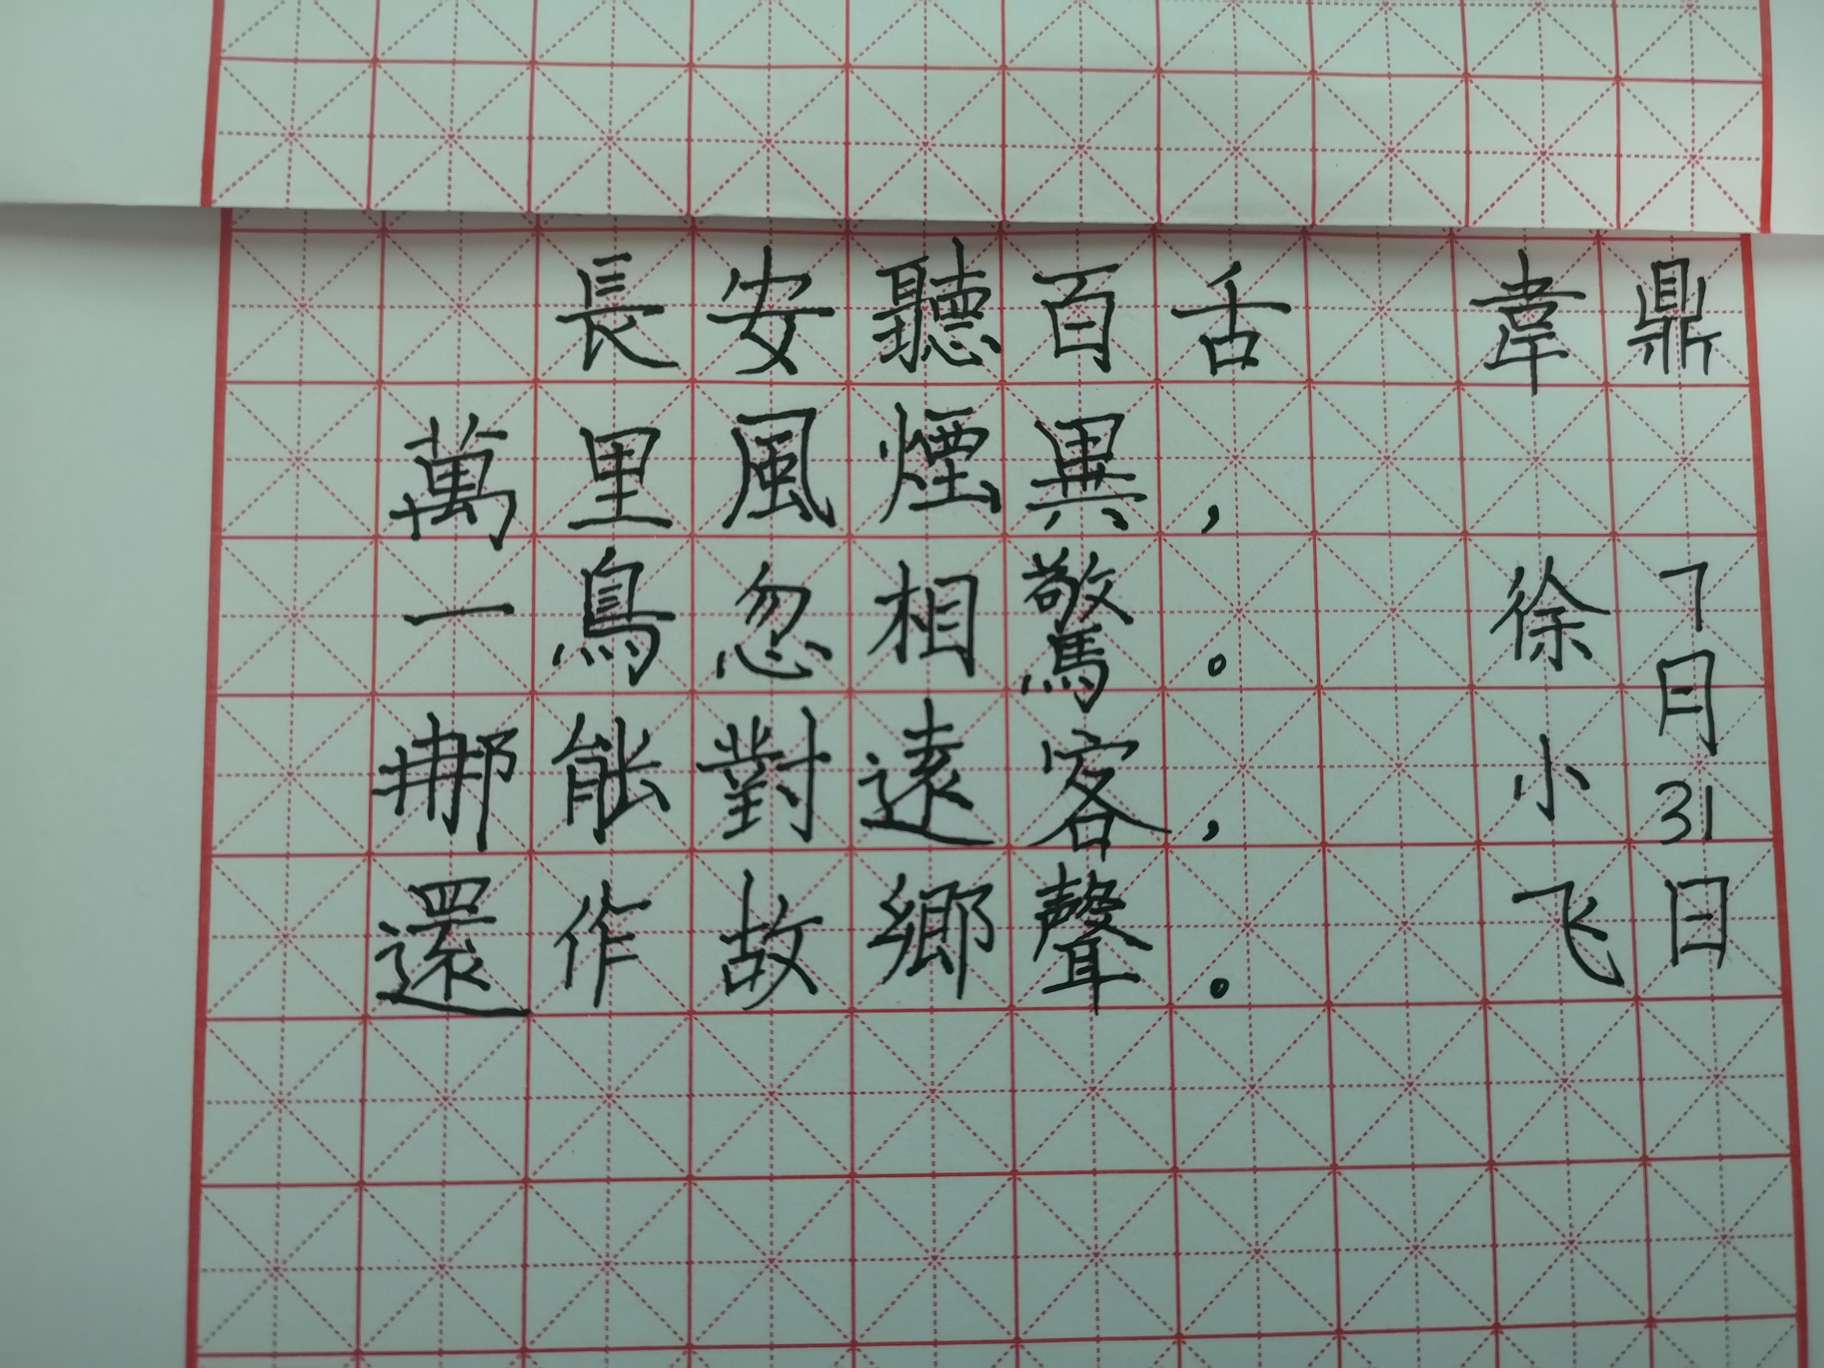 長安聽百舌 韋鼎
萬里風煙異，
一鳥忽相驚。
那能對遠客，
還作故鄉聲。
徐小飞
7月31日